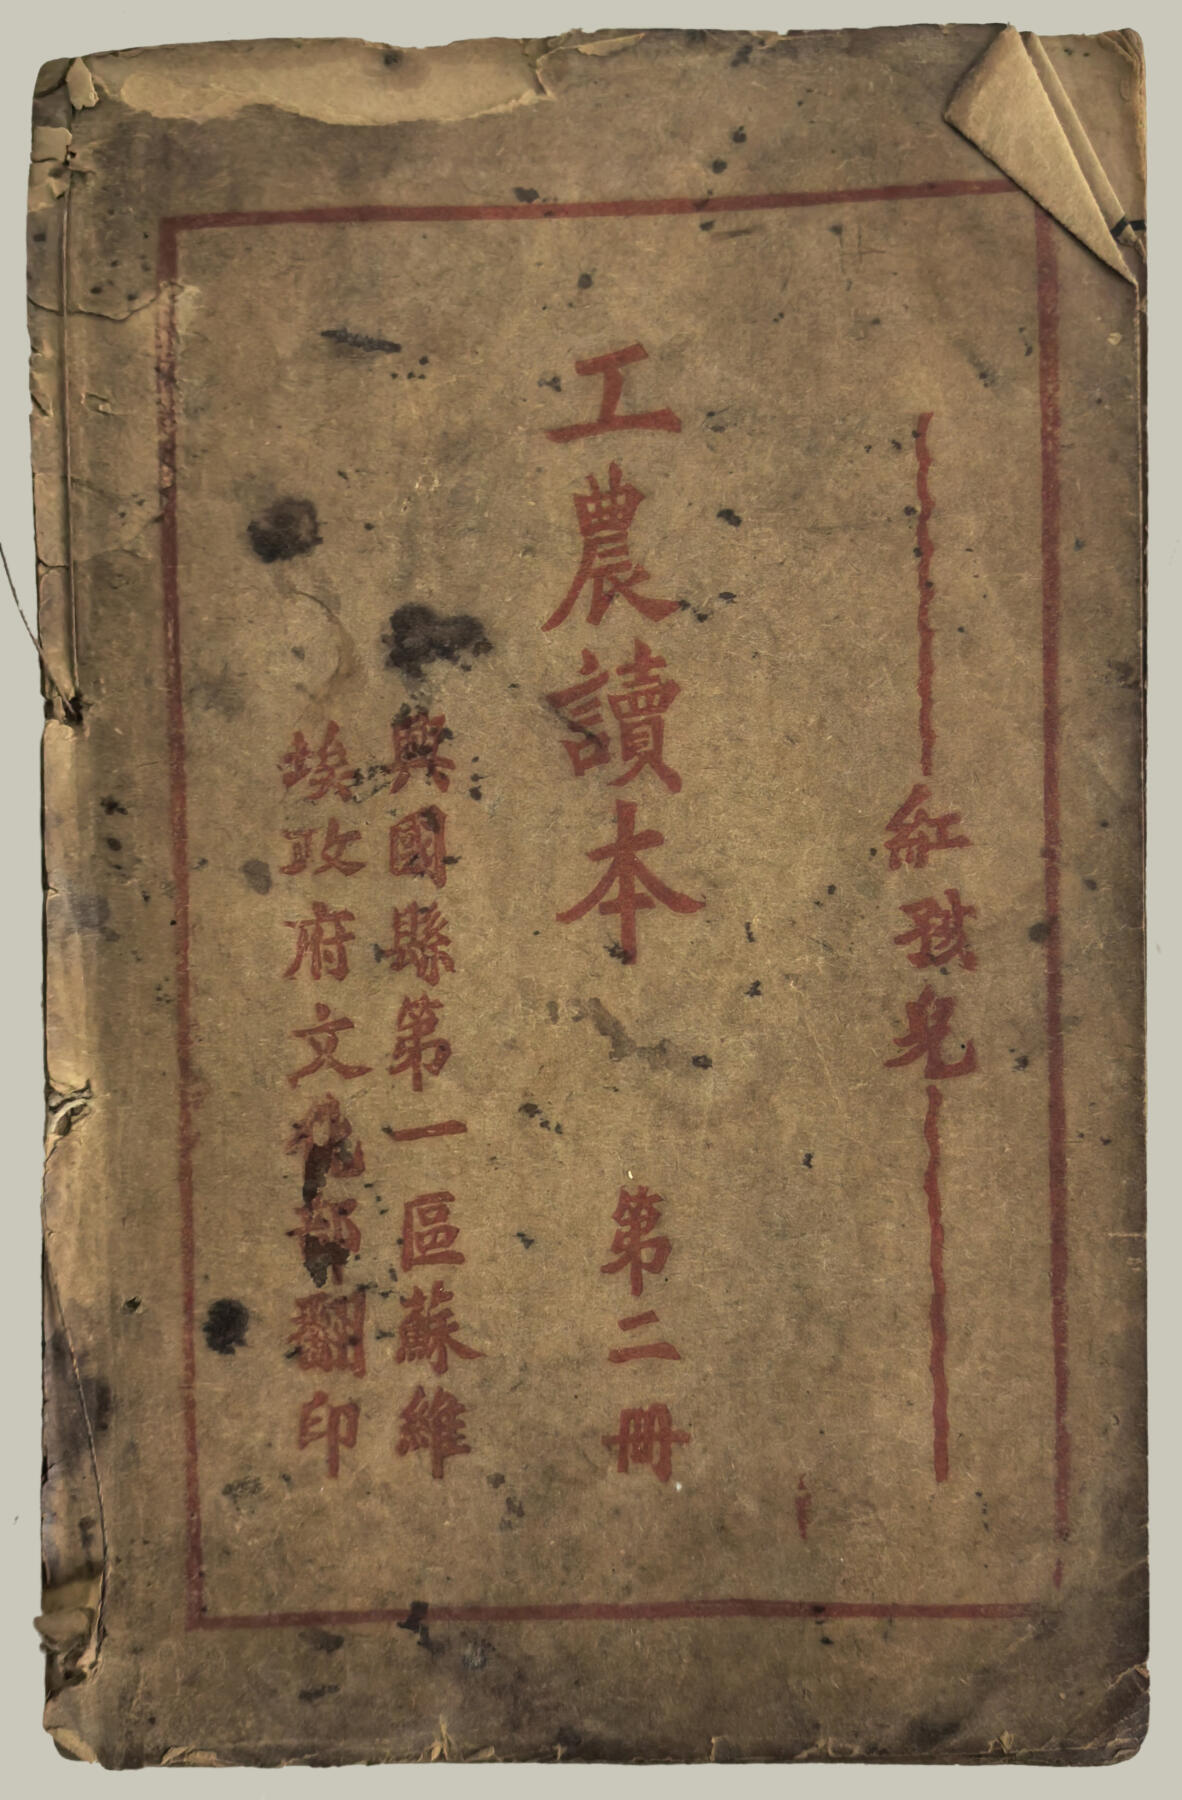 紅孩兒
工農讀本
第二冊
興國縣第一區蘇維
埃政府文化部翻印